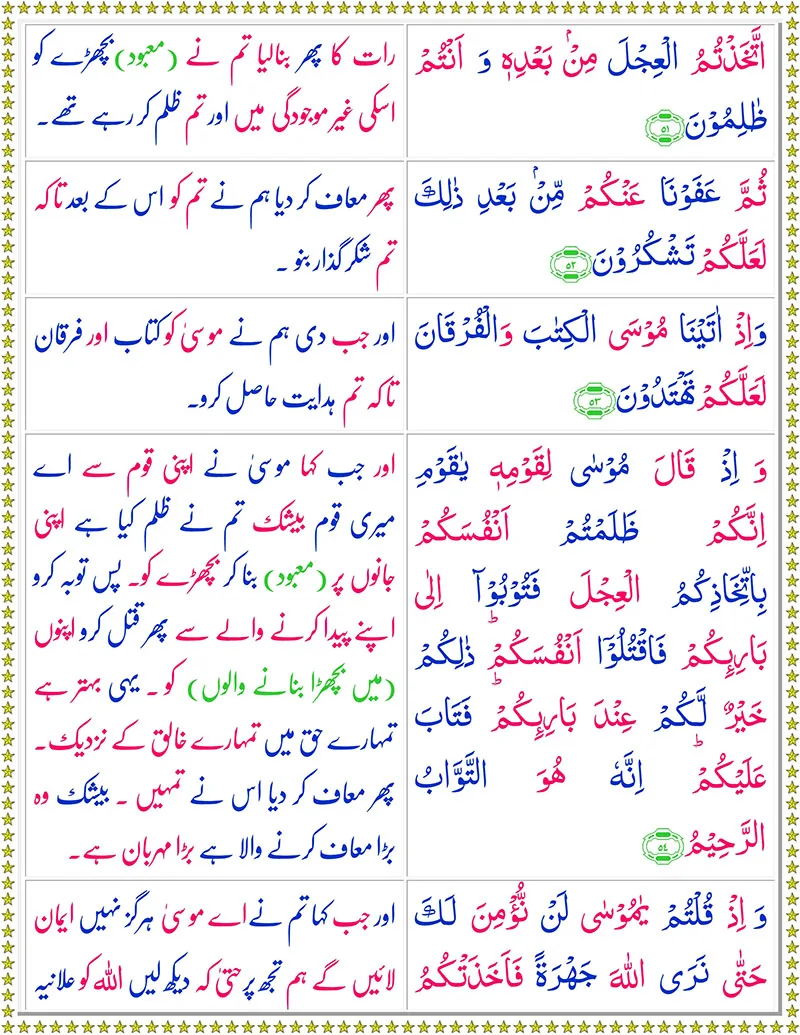 اتَّخَذْتُمُ الْعِجْلَ مِنْۢ بَعْدِهٖ وَ اَنْتُمْ
ظٰلِمُوْنَ ﴿۵۱﴾
رات کا پھر بنالیا تم نے (معبود) بچھڑے کو
اسکی غیر موجودگی میں اور تم ظلم کر رہے تھے۔
ثُمَّ عَفَوْنَا عَنْكُمْ مِّنْۢ بَعْدِ ذٰلِكَ
لَعَلَّكُمْ تَشْكُرُوْنَ ﴿۵۲﴾
پھر معاف کر دیا ہم نے تم کو اس کے بعد تاکہ
تم شکر گذار بنو ۔
وَاِذْ اٰتَيْنَا مُوْسَى الْكِتٰبَ وَالْفُرْقَانَ
لَعَلَّكُمْ تَهْتَدُوْنَ ﴿۵۳﴾
اور جب دی ہم نے موسیٰ کو کتاب اور فرقان
تاکہ تم ہدایت حاصل کرو۔
وَ اِذْ قَالَ مُوْسٰى لِقَوْمِهٖ يٰقَوْمِ
اِنَّكُمْ ظَلَمْتُمْ اَنْفُسَكُمْ
بِاتِّخَاذِكُمُ الْعِجْلَ فَتُوْبُوْۤا اِلٰى
بَارِىِٕكُمْ فَاقْتُلُوْۤا اَنْفُسَكُمْ ؕ ذٰلِكُمْ
خَيْرٌ لَّكُمْ عِنْدَ بَارِىِٕكُمْ ؕ فَتَابَ
عَلَيْكُمْ ؕ اِنَّهٗ هُوَ التَّوَّابُ
الرَّحِيْمُ ﴿۵۴﴾
اور جب کہا موسیٰ نے اپنی قوم سے اے
میری قوم بیشک تم نے ظلم کیا ہے اپنی
جانوں پر (معبود) بنا کر بچھڑے کو۔ پس توبہ کرو
اپنے پیدا کرنے والے سے پھر قتل کرو اپنوں
(میں بچھڑا بنانے والوں) کو ۔ یہی بہتر ہے
تمہارے حق میں تمہارے خالق کے نزدیک۔
پھر معاف کر دیا اس نے تمہیں ۔ بیشک وہ
بڑا معاف کرنے والا ہے بڑا مہربان ہے۔
وَ اِذْ قُلْتُمْ يٰمُوْسٰى لَنْ نُّؤْمِنَ لَكَ
حَتّٰى نَرَى اللّٰهَ جَهْرَةً فَاَخَذَتْكُمُ
اور جب کہا تم نے اے موسیٰ ہرگز نہیں ایمان
لائیں گے ہم تجھ پر حتیٰ کہ دیکھ لیں اللہ کو علانیہ